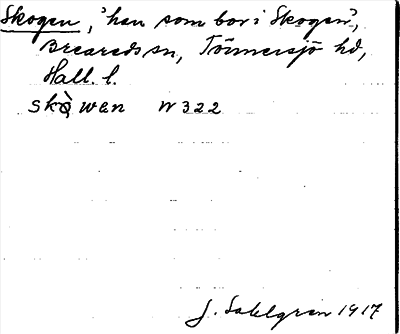 Skogen, 'han som bor i Skogen',
Breareds sn, Tönnersjö hd,
Hall. l.
skò wen W 322
J. Sahlgren 1917